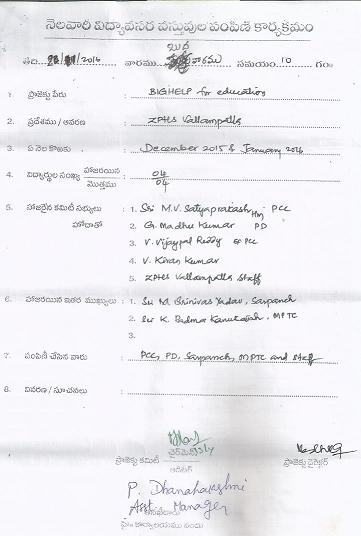 నెలవారీ విద్యావసర వస్తువుల పంపిణి కార్యక్రమం
బుధ
తేది: 2016 వారము వారము సమయం: 10 గం
1. ప్రాజెక్టు పేరు : BIGHELP for education
2. ప్రదేశము / ఆవరణ : ZPHS Vallampatla
3. ఏ నెల కొఱకు : December 2015 & January 2016
4. విద్యార్థుల సంఖ్య హాజరయిన : 04
మొత్తము 04
5. హాజరైన కమిటీ సభ్యులు : 1. Sri M.V. Satyaprakash, Hm PCC
హోదాతో 2. G. Madhu Kumar PD
3. V. Vijaypal Reddy PCC
4. V. Kiran Kumar
5. ZPHS Vallampatla Staff
6. హాజరయిన ఇతర ముఖ్యులు : 1. Sri M. Srinivas Yadav, Sarpanch
2. Sri K. Padma MPTC
3.
7. పంపిణీ చేసిన వారు : PCC, PD, Sarpanch, MPTC and Staff
8. వివరణ / సూచనలు :
ప్రాజెక్టు కమిటీ చైర్మెన్ ప్రాజెక్టు డైరెక్టర్
P. Dhanalakshmi
Asst Manager